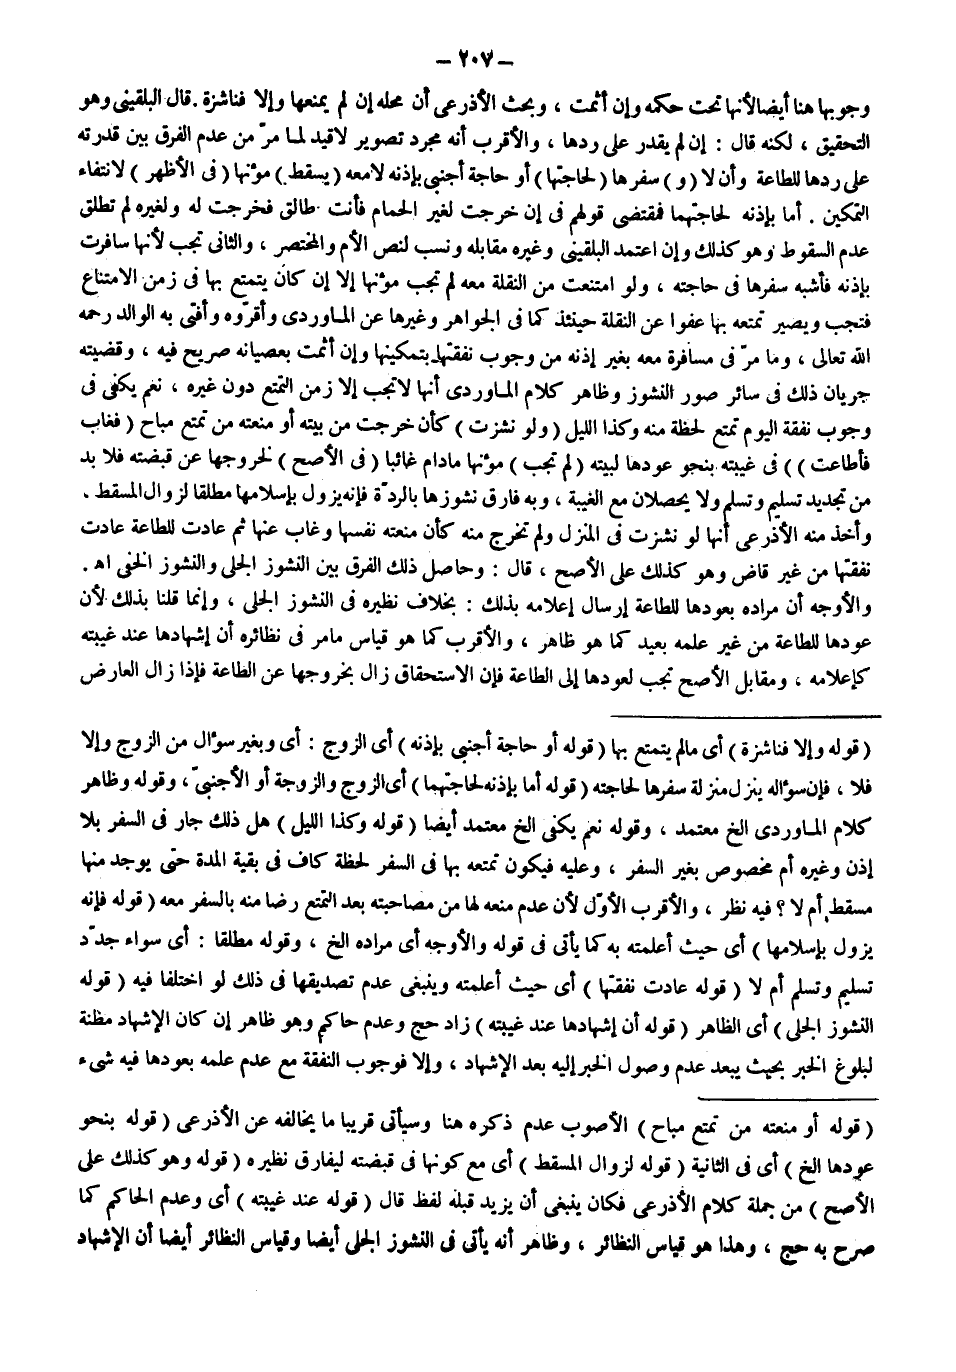 – ٢٠٧ –
وجوبها هنا أيضا لأنها تحت حكمه وإن أثمت ، وبحث الأذرعى أن محله إن لم يمنعها وإلا فناشزة . قال البلقينى وهو
التحقيق ، لكنه قال : إن لم يقدر على ردها ، والأقرب أنه مجرد تصوير لا قيد لما مرّ من عدم الفرق بين قدرته
على ردها للطاعة وأن لا (و) سفرها (لحاجتها) أو حاجة أجنبى بإذنه لا معه (يسقط) مؤنها (فى الأظهر) لانتفاء
التمكين . أما بإذنه لحاجتهما فمقتضى قولهم فى إن خرجت لغير الحمام فأنت طالق فخرجت له ولغيره لم تطلق
عدم السقوط وهو كذلك وإن اعتمد البلقينى وغيره مقابله ونسب لنص الأم والمختصر ، والثانى تجب لأنها سافرت
بإذنه فأشبه سفرها فى حاجته ، ولو امتنعت من النقلة معه لم تجب مؤنها إلا إن كان يتمتع بها فى زمن الامتناع
فتجب ويصير تمتعه بها عفوا عن النقلة حينئذ كما فى الجواهر وغيرها عن الماوردى وأقرّوه وأفتى به الوالد رحمه
الله تعالى ، وما مرّ فى مسافرة معه بغير إذنه من وجوب نفقتها بتمكينها وإن أثمت بعصيانه صريح فيه ، وقضيته
جريان ذلك فى سائر صور النشوز وظاهر كلام الماوردى أنها لا تجب إلا زمن التمتع دون غيره ، نعم يكفى فى
وجوب نفقة اليوم تمتع لحظة منه وكذا الليل ( ولو نشزت ) كأن خرجت من بيته أو منعته من تمتع مباح ( فغاب
فأطاعت ) ) فى غيبته بنحو عودها لبيته ( لم تجب ) مؤنها مادام غائبا ( فى الأصح ) لخروجها عن قبضته فلا بد
من تجديد تسليم وتسلم ولا يحصلان مع الغيبة ، وبه فارق نشوزها بالردّة فإنه يزول بإسلامها مطلقا لزوال المسقط .
وأخذ منه الأذرعى أنها لو نشزت فى المنزل ولم تخرج منه كأن منعته نفسها وغاب عنها ثم عادت للطاعة عادت
نفقتها من غير قاض وهو كذلك على الأصح ، قال : وحاصل ذلك الفرق بين النشوز الجلى والنشوز الخفى اهـ .
والأوجه أن مراده بعودها للطاعة إرسال إعلامه بذلك : بخلاف نظيره فى النشوز الجلى ، وإنما قلنا بذلك لأن
عودها للطاعة من غير علمه بعيد كما هو ظاهر ، والأقرب كما هو قياس مامر فى نظائره أن إشهادها عند غيبته
كإعلامه ، ومقابل الأصح تجب لعودها إلى الطاعة فإن الاستحقاق زال بخروجها عن الطاعة فإذا زال العارض
( قوله وإلا فناشزة ) أى مالم يتمتع بها ( قوله أو حاجة أجنبى بإذنه ) أى الزوج : أى وبغير سؤال من الزوج وإلا
فلا ، فإن سؤاله ينزل منزلة سفرها لحاجته ( قوله أما بإذنه لحاجتهما ) أى الزوج والزوجة أو الأجنبىّ ، وقوله وظاهر
كلام الماوردى الخ معتمد ، وقوله نعم يكفى الخ معتمد أيضا ( قوله وكذا الليل ) هل ذلك جار فى السفر بلا
إذن وغيره أم مخصوص بغير السفر ، وعليه فيكون تمتعه بها فى السفر لحظة كاف فى بقية المدة حتى يوجد منها
مسقط أم لا ؟ فيه نظر ، والأقرب الأوّل لأن عدم منعه لها من مصاحبته بعد التمتع رضا منه بالسفر معه ( قوله فإنه
يزول بإسلامها ) أى حيث أعلمته به كما يأتى فى قوله والأوجه أى مراده الخ ، وقوله مطلقا : أى سواء جدّد
تسليم وتسلم أم لا ( قوله عادت نفقتها ) أى حيث أعلمته وينبغى عدم تصديقها فى ذلك لو اختلفا فيه ( قوله
النشوز الجلى ) أى الظاهر ( قوله أن إشهادها عند غيبته ) زاد حج وعدم حاكم وهو ظاهر إن كان الإشهاد مظنة
لبلوغ الخبر بحيث يبعد عدم وصول الخبر إليه بعد الإشهاد ، وإلا فوجوب النفقة مع عدم علمه بعودها فيه شىء
( قوله أو منعته من تمتع مباح ) الأصوب عدم ذكره هنا وسيأتى قريبا ما يخالفه عن الأذرعى ( قوله بنحو
عودها الخ ) أى فى الثانية ( قوله لزوال المسقط ) أى مع كونها فى قبضته ليفارق نظيره ( قوله وهو كذلك على
الأصح ) من جملة كلام الأذرعى فكان ينبغى أن يزيد قبله لفظ قال ( قوله عند غيبته ) أى وعدم الحاكم كما
صرح به حج ، وهذا هو قياس النظائر ، وظاهر أنه يأتى فى النشوز الجلى أيضا وقياس النظائر أيضا أن الإشهاد